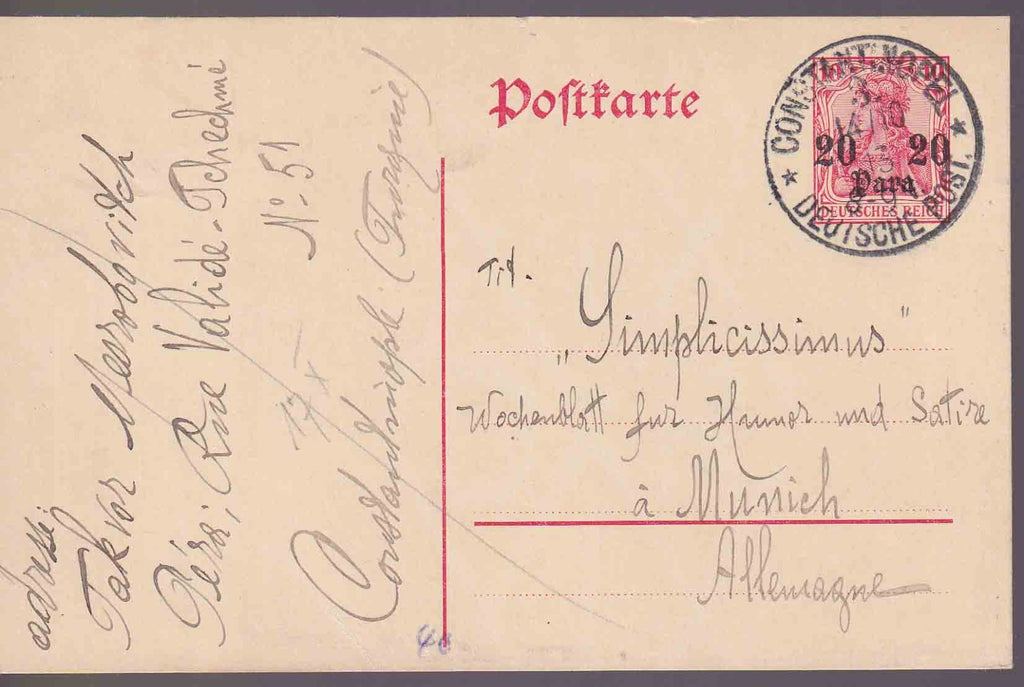 Postkarte
10 10
20 20
Para
DEUTSCHES REICH
CONSTANTINOPEL
3
14 10
13
8-9
DEUTSCHE POST.
Tit.
„Simplicissimus"
Wochenblatt für Humor und Satire
à Munich
Allemagne
adresse:
Takvor Mesrobovitch
Péra; Rue Validé-Tchechmé
No. 51
Constantinople (Turquie)
17/X